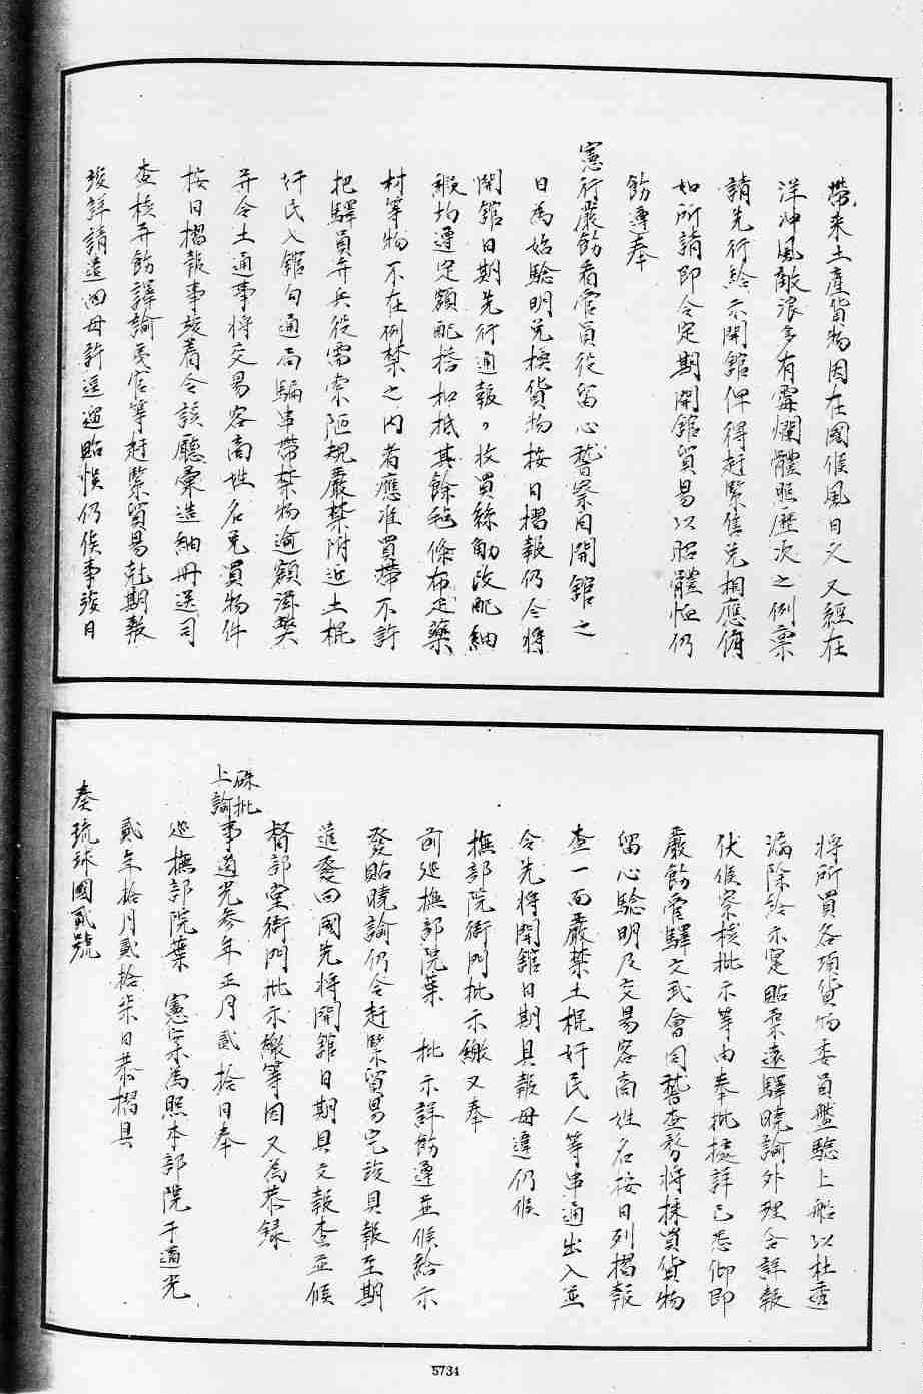 帶來土產貨物因在國候風日久又經在
洋冲風敵浪多有霉爛體照歷次之例稟
請先行給示開舘俾得赶緊售兌相應俯
如所請即令定期開舘貿易以昭體恤仍
飭遵奉
憲行嚴飭看官員役留心誓察自開舘之
日為始驗明兌換貨物按日摺報仍令將
開舘日期先行通報收買絲觔改配紬
緞均遵定額配搭扣抵其餘毡條布疋藥
材等物不在例禁之內者應准買帶不許
把驛員弁兵役需索陋規嚴禁附近土棍
奸民入舘勾通局騙串帶禁物逾額滋獘
并令土通事將交易客商姓名兌買物件
按日摺報事竣着令該廳彙造細冊送司
查核并飭譯諭夷官等赶緊貿易尅期報
竣詳請遣回毋許逗遛貽悞仍俟事竣日
將所買各項貨物委員盤驗上船以杜透
漏除給示寔貼柔遠驛曉諭外理合詳報
伏候察核批示等由奉批據詳已悉仰即
嚴飭管驛文武會同誓查務將採買貨物
留心驗明及交易客商姓名按日列摺報
查一面嚴禁土棍奸民人等串通出入並
令先將開舘日期具報毋違仍候
撫部院衙門批示繳又奉
前巡撫部院葉 批示詳飭遵並候給示
發貼曉諭仍令赶緊貿易完竣具報至期
遣發回國先將開舘日期具文報查並候
督部堂衙門批示繳等因又為恭錄
硃批
上諭事道光參年正月貳拾日奉
巡撫部院葉 憲案為照本部院于道光
貳年拾月貳拾柒日恭摺具
奏琉球國貳號
5734